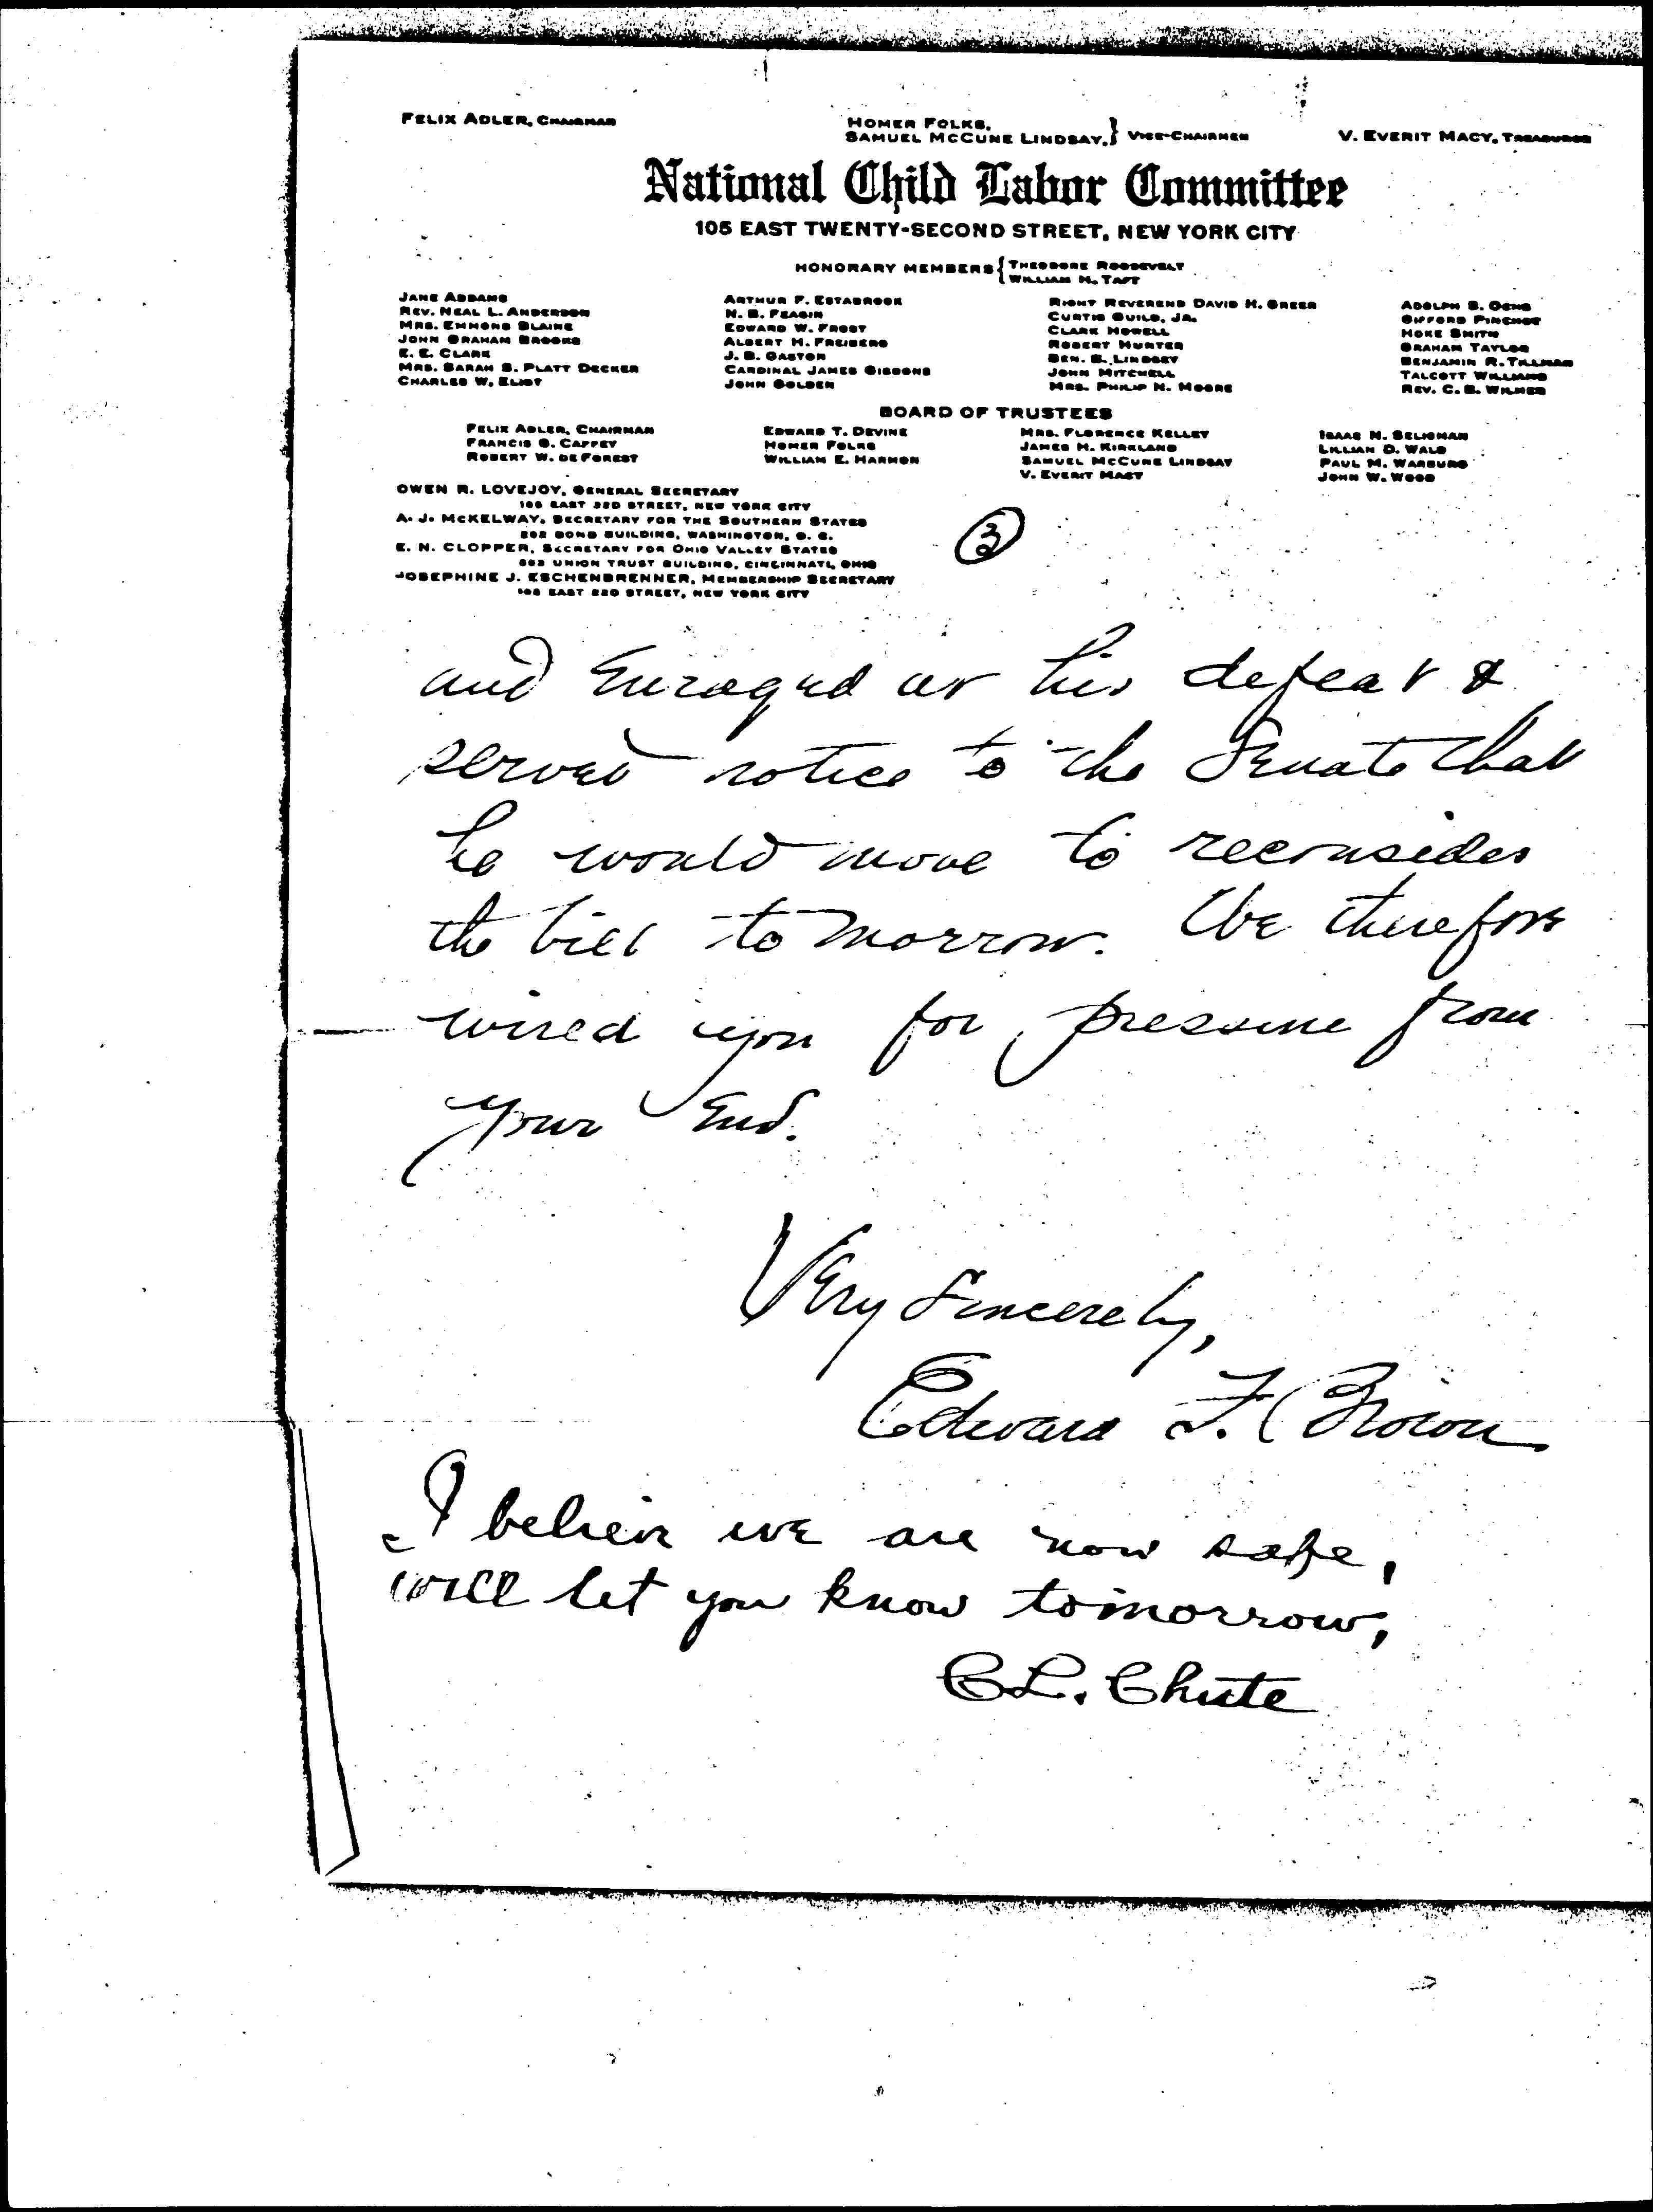 FELIX ADLER, CHAIRMAN
HOMER FOLKS,
SAMUEL MCCUNE LINDSAY, } VICE-CHAIRMEN
V. EVERIT MACY, TREASURER
National Child Labor Committee
105 EAST TWENTY-SECOND STREET, NEW YORK CITY
HONORARY MEMBERS { THEODORE ROOSEVELT
WILLIAM H. TAFT
JANE ADDAMS
REV. NEAL L. ANDERSON
MRS. EMMONS BLAINE
JOHN GRAHAM BROOKS
E. E. CLARK
MRS. SARAH S. PLATT DECKER
CHARLES W. ELIOT
ARTHUR F. ESTABROOK
N. B. FEAGIN
EDWARD W. FROST
ALBERT H. FREIBERG
J. B. GASTON
CARDINAL JAMES GIBBONS
JOHN GOLDEN
RIGHT REVEREND DAVID H. GREER
CURTIS GUILD, JR.
CLARK HOWELL
ROBERT HUNTER
BEN. B. LINDSEY
JOHN MITCHELL
MRS. PHILIP N. MOORE
ADOLPH S. OCHS
GIFFORD PINCHOT
HOKE SMITH
GRAHAM TAYLOR
BENJAMIN R. TILLMAN
TALCOTT WILLIAMS
REV. C. B. WILMER
BOARD OF TRUSTEES
FELIX ADLER, CHAIRMAN
FRANCIS G. CAFFEY
ROBERT W. DE FOREST
EDWARD T. DEVINE
HOMER FOLKS
WILLIAM E. HARMON
MRS. FLORENCE KELLEY
JAMES H. KIRKLAND
SAMUEL MCCUNE LINDSAY
V. EVERIT MACY
ISAAC N. SELIGMAN
LILLIAN D. WALD
PAUL M. WARBURG
JOHN W. WOOD
OWEN R. LOVEJOY, GENERAL SECRETARY
105 EAST 22D STREET, NEW YORK CITY
A. J. MCKELWAY, SECRETARY FOR THE SOUTHERN STATES
202 BOND BUILDING, WASHINGTON, D. C.
E. N. CLOPPER, SECRETARY FOR OHIO VALLEY STATES
UNION TRUST BUILDING, CINCINNATI, OHIO
JOSEPHINE J. ESCHENBRENNER, MEMBERSHIP SECRETARY
105 EAST 22D STREET, NEW YORK CITY
3
and Enraged at his defeat &
served notice to the Senate that
he would move to reconsider
the bill tomorrow. We therefore
wired you for pressure from
your End.
Very Sincerely,
Edward F. Brown
I believe we are now safe,
will let you know tomorrow,
C.L. Chute